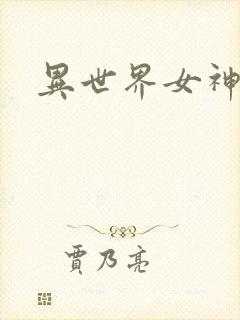 異世界女神
賈乃亮